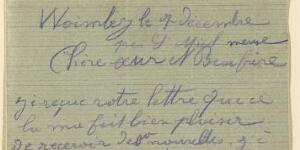 Woimbey le 7 decembre
par St Myiel meuse
Chere sœur N Beaufrère
j'ai reçue votre lettre que ce
la ma fait bien plaisir
de recevoir de vo nouvelles, j'ai